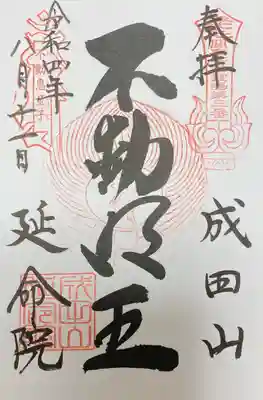 奉拝
成田山
不動明王
令和四年
八月十一日
延命院